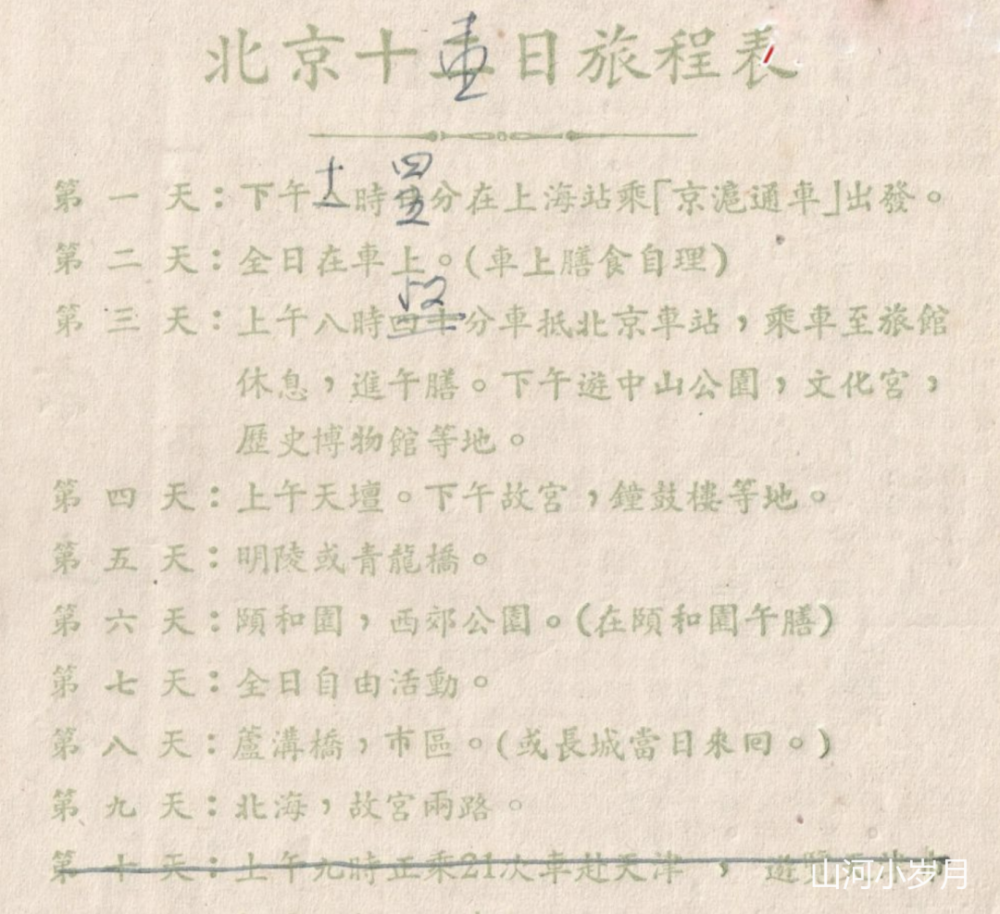 北京十日旅程表
十 四五
第一天：下午時分在上海站乘「京滬通車」出發。
第二天：全日在車上。(車上膳食自理)
52
第三天：上午八時四十分車抵北京車站，乘車至旅館
休息，進午膳。下午遊中山公園，文化宮，
歷史博物館等地。
第四天：上午天壇。下午故宮，鐘鼓樓等地。
第五天：明陵或青龍橋。
第六天：頤和園，西郊公園。(在頤和園午膳)
第七天：全日自由活動。
第八天：蘆溝橋，市區。(或長城當日來回。)
第九天：北海，故宮兩路。
第十天：上午九時正乘21次車赴天津，遊覽
山河小岁月